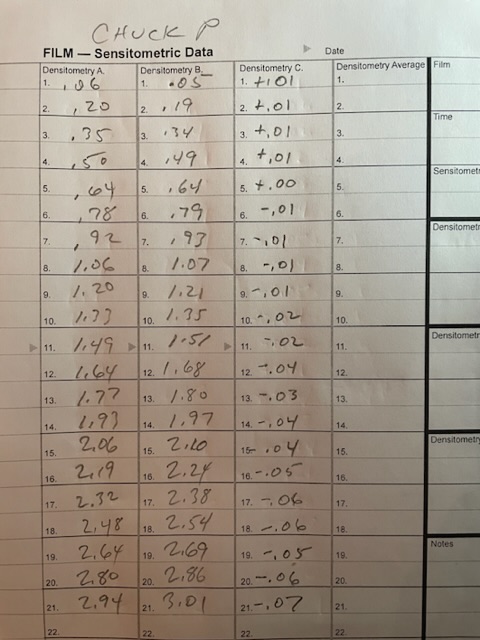 CHUCK P
FILM — Sensitometric Data Date
Densitometry A. Densitometry B. Densitometry C. Densitometry Average Film
1. .06 1. .05 1. +.01 1.
2. .20 2. .19 2. +.01 2.
Time
3. .35 3. .34 3. +.01 3.
4. .50 4. .49 4. +.01 4.
Sensitomet
5. .64 5. .64 5. +.00 5.
6. .78 6. .79 6. -.01 6.
Densitomet
7. .92 7. .93 7. -.01 7.
8. 1.06 8. 1.07 8. -.01 8.
9. 1.20 9. 1.21 9. -.01 9.
10. 1.33 10. 1.35 10. -.02 10.
Densitometr
11. 1.49 11. 1.51 11. -.02 11.
12. 1.64 12. 1.68 12. -.04 12.
13. 1.77 13. 1.80 13. -.03 13.
14. 1.93 14. 1.97 14. -.04 14.
Densitometry
15. 2.06 15. 2.10 15. -.04 15.
16. 2.19 16. 2.24 16. -.05 16.
17. 2.32 17. 2.38 17. -.06 17.
18. 2.48 18. 2.54 18. -.06 18.
Notes
19. 2.64 19. 2.69 19. -.05 19.
20. 2.80 20. 2.86 20. -.06 20.
21. 2.94 21. 3.01 21. -.07 21.
22. 22. 22. 22.